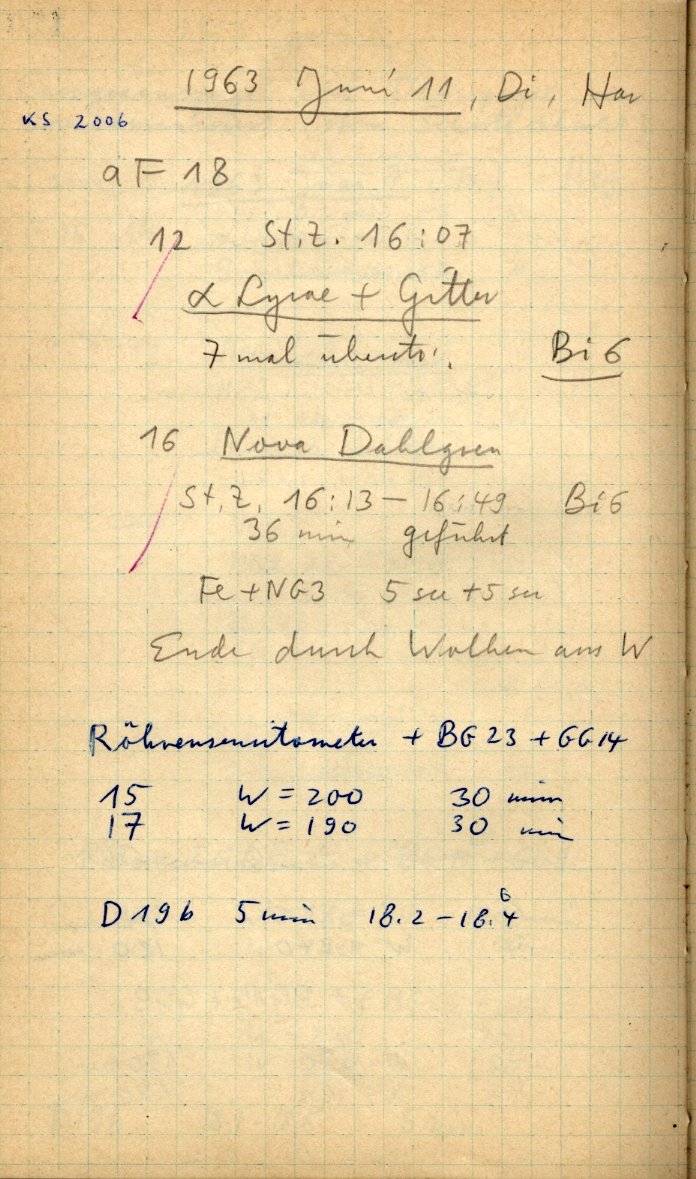 1963 Juni 11, Di, Har
KS 2006
aF 18
12 St.Z. 16:07
α Lyrae + Gitter
7 mal Bi 6
16 Nova Dahlgren
St.Z. 16:13 – 16:49 Bi 6
36 min geführt
Fe + NG3 5 sec + 5 sec
Ende durch Wolken aus W
Röhrensensitometer + BG 23 + GG 14
15 W = 200 30 min
17 W = 190 30 min
D 19 b 5 min 18.2 – 18.4
6